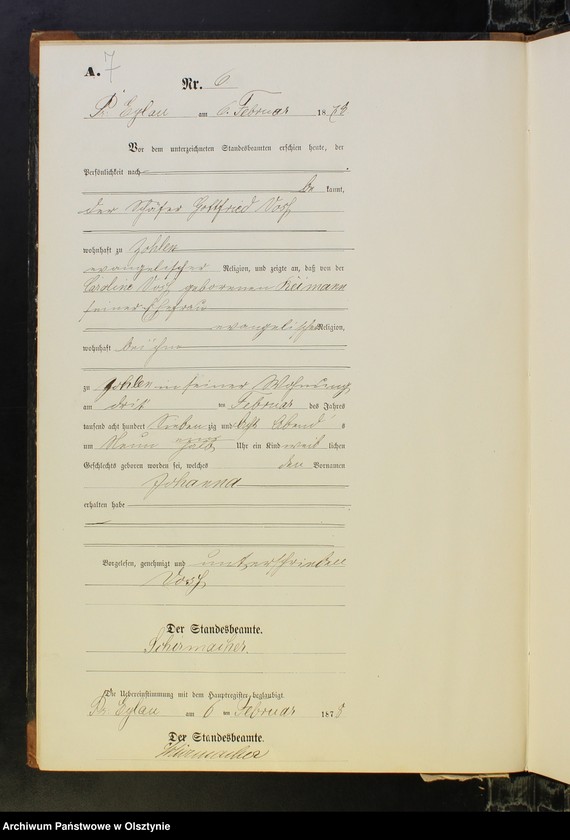 A. 7
Nr. 6
Pr. Eylau am 6. Februar 1878
Vor dem unterzeichneten Standesbeamten erschien heute, der
Persönlichkeit nach
be kannt,
der Schäfer Gottfried Voss
wohnhaft zu Zohlen
evangelischer Religion, und zeigte an, daß von der
Caroline Voss geborenen Reimann
seiner Ehefrau
evangelischer Religion,
wohnhaft bei ihm
zu Zohlen in seiner Wohnung
am drit im Februar des Jahres
tausend acht hundert Sieben zig und acht Abend s
um Neun Uhr ein Kind weib lichen
Geschlechts geboren worden sei, welches den Vornamen
Johanna
erhalten habe
Vorgelesen, genehmigt und unterschrieben
Voss
Der Standesbeamte.
Schirmacher.
Die Uebereinstimmung mit dem Hauptregister beglaubigt
Pr. Eylau am 6 ten Februar 1878
Der Standesbeamte.
Schirmacher
Archiwum Państwowe w Olsztynie